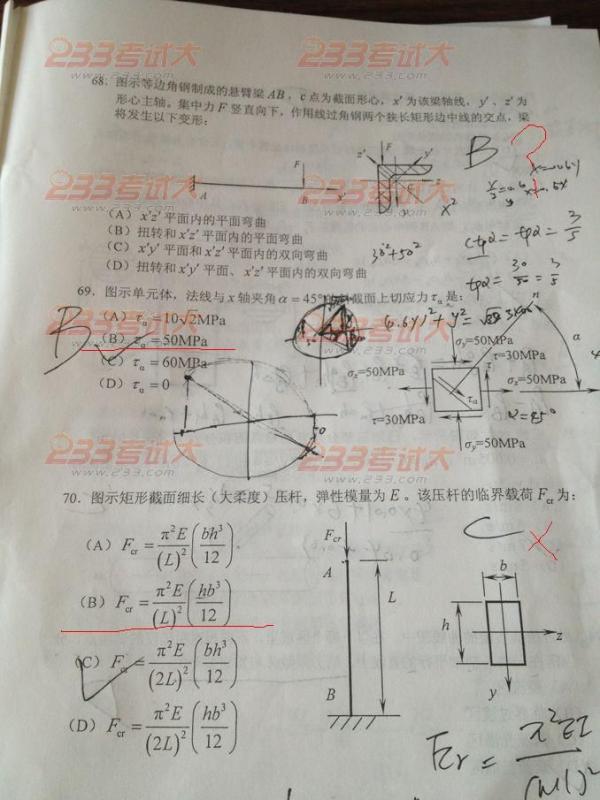 233考试大
www.233.com
68. 图示等边角钢制成的悬臂梁 AB，c 点为截面形心，x′为该梁轴线，y′、z′为
形心主轴。集中力 F 竖直向下，作用线过角钢两个狭长矩形边中线的交点，梁
将发生以下变形：
F
A
B
x′
z′
F
y′
z
y
B
?
(A) x′z′平面内的平面弯曲
(B) 扭转和 x′z′平面内的平面弯曲
(C) x′y′平面和 x′z′平面内的双向弯曲
(D) 扭转和 x′y′平面、x′z′平面内的双向弯曲
x²
30²+50²
69. 图示单元体，法线与 x 轴夹角 α = 45°的斜截面上切应力 τα 是：
B
(A) τα = 10√2MPa
(B) τα = 50MPa
(C) τα = 60MPa
(D) τα = 0
50
n
σy=50MPa
τ=30MPa
σx=50MPa
σx=50MPa
τα
α
τ=30MPa
σy=50MPa
70. 图示矩形截面细长（大柔度）压杆，弹性模量为 E。该压杆的临界载荷 Fcr 为：
C
(A) Fcr = π²E/(L)² (bh³/12)
(B) Fcr = π²E/(L)² (hb³/12)
(C) Fcr = π²E/(2L)² (bh³/12)
(D) Fcr = π²E/(2L)² (hb³/12)
Fcr
A
L
B
b
h
z
y
Fcr = π²EI/(μl)²